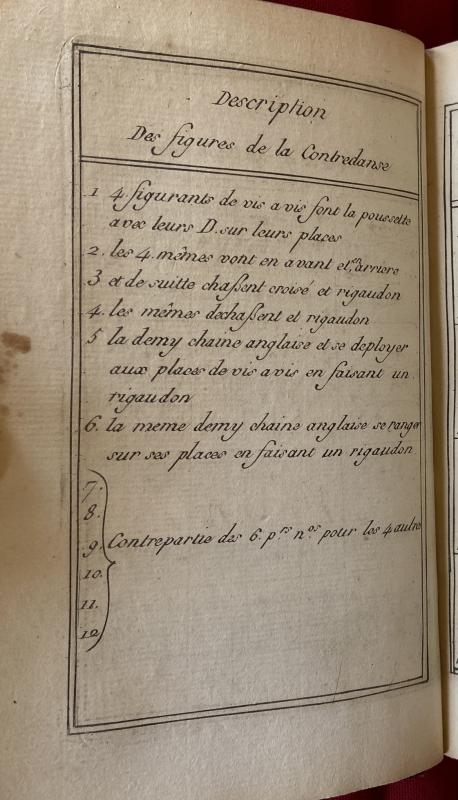 Description
Des figures de la Contredanse
1 4. figurants de vis a vis font la poussette
avec leurs D. sur leurs places
2. les 4. mêmes vont en avant et en arriere
3 et de suitte chassent croisé et rigaudon
4. les mêmes dechassent et rigaudon
5 la demy chaine anglaise et se deployer
aux places de vis a vis en faisant un
rigaudon
6. la meme demy chaine anglaise se ranger
sur ses places en faisant un rigaudon
7.
8.
9. Contrepartie des 6. p.rs n.os pour les 4 autre
10.
11.
12